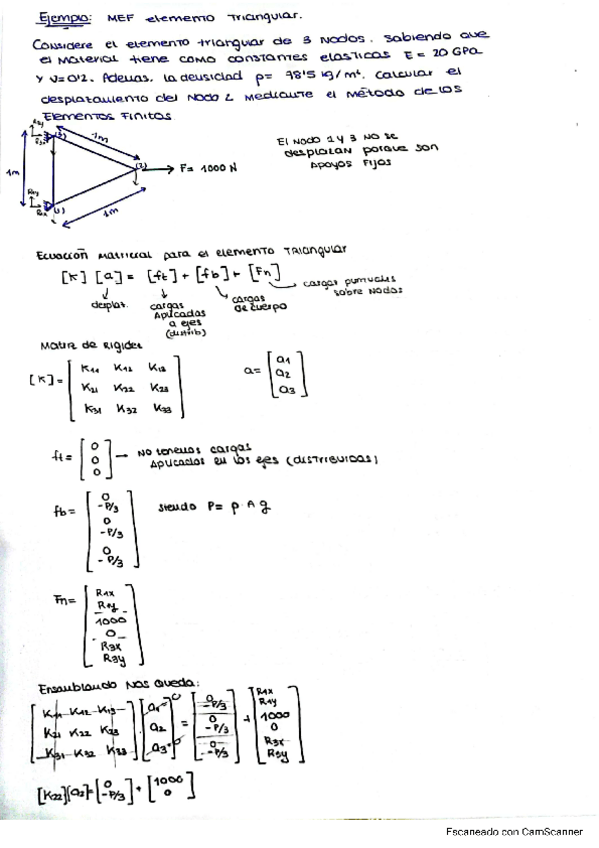 Ejemplo: MEF elemento Triangular.
Considere el elemento triangular de 3 nodos. Sabiendo que
el material tiene como constantes elasticas E = 20 GPa
y ν=0'2. Ademas, la densidad ρ= 78'5 kg/m³. Calcular el
desplazamiento del nodo 2 mediante el método de los
Elementos Finitos
R3y
R3x
(3)
1m
1m
(2)
F= 1000 N
R1y
R1x
(1)
1m
El nodo 1 y 3 no se
desplazan porque son
apoyos fijos
Ecuación matricial para el elemento TRIangular
[K] [a] = [ft] + [fb] + [Fn]
desplat.
cargas
Aplicadas
a ejes
(distrib)
cargas
de cuerpo
cargas puntuales
sobre nodos
Matriz de Rigidez
[K] = [K11 K12 K13
K21 K22 K23
K31 K32 K33]
a= [a1
a2
a3]
ft = [0
0
0] → No tenemos cargas
Aplicadas en los ejes (distribuidas)
fb = [0
-P/3
0
-P/3
0
-P/3]
siendo P= ρ·A·g
Fn= [R1x
R1y
1000
0
R3x
R3y]
Ensamblando nos queda:
[K11 K12 K13
K21 K22 K23
K31 K32 K33] [a1 0
a2
a3 0] = [0
-P/3
0
-P/3
0
-P/3] + [R1x
R1y
1000
0
R3x
R3y]
[K22][a2]= [0
-P/3] + [1000
0]
Escaneado con CamScanner